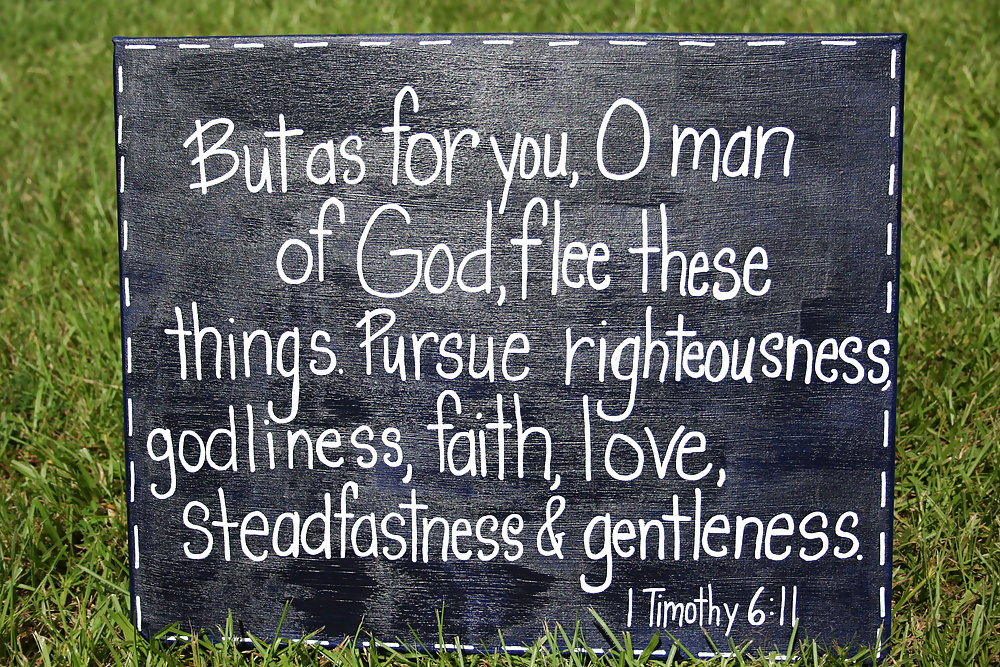 But as for you, O man
of God, flee these
things. Pursue righteousness,
godliness, faith, love,
steadfastness & gentleness.
1 Timothy 6:11